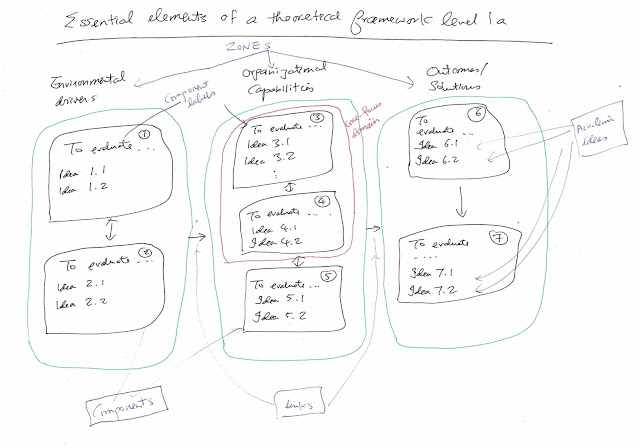 Essential elements of a theoretical framework level 1a
ZONES
Environmental
drivers
Component
labels
Organizational
Capabilities
Outcomes/
Solutions
①
To evaluate ...
Idea 1.1
Idea 1.2
②
To evaluate ....
Idea 2.1
Idea 2.2
③
To evaluate ...
Idea 3.1
Idea 3.2
:
Core-focus
domain
④
To evaluate ...
Idea 4.1
Idea 4.2
⑤
To evaluate ...
Idea 5.1
Idea 5.2
⑥
To
evaluate ...
Idea 6.1
Idea 6.2
⑦
To evaluate
....
Idea 7.1
Idea 7.2
Academic
ideas
Components
Links